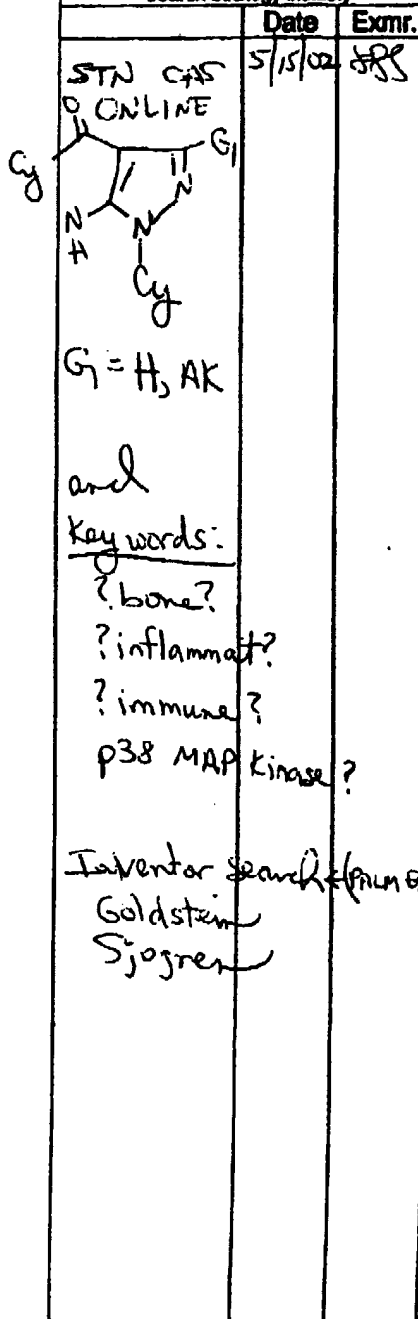 Date Exmr.
STN CAS 5/15/02
ONLINE
O
Cy G1
N
N N
H
Cy
G1 = H, AK
and
Key words:
?bone?
?inflammat?
?immune?
p38 MAP Kinase?
Inventor search
Goldstein
Sjogren